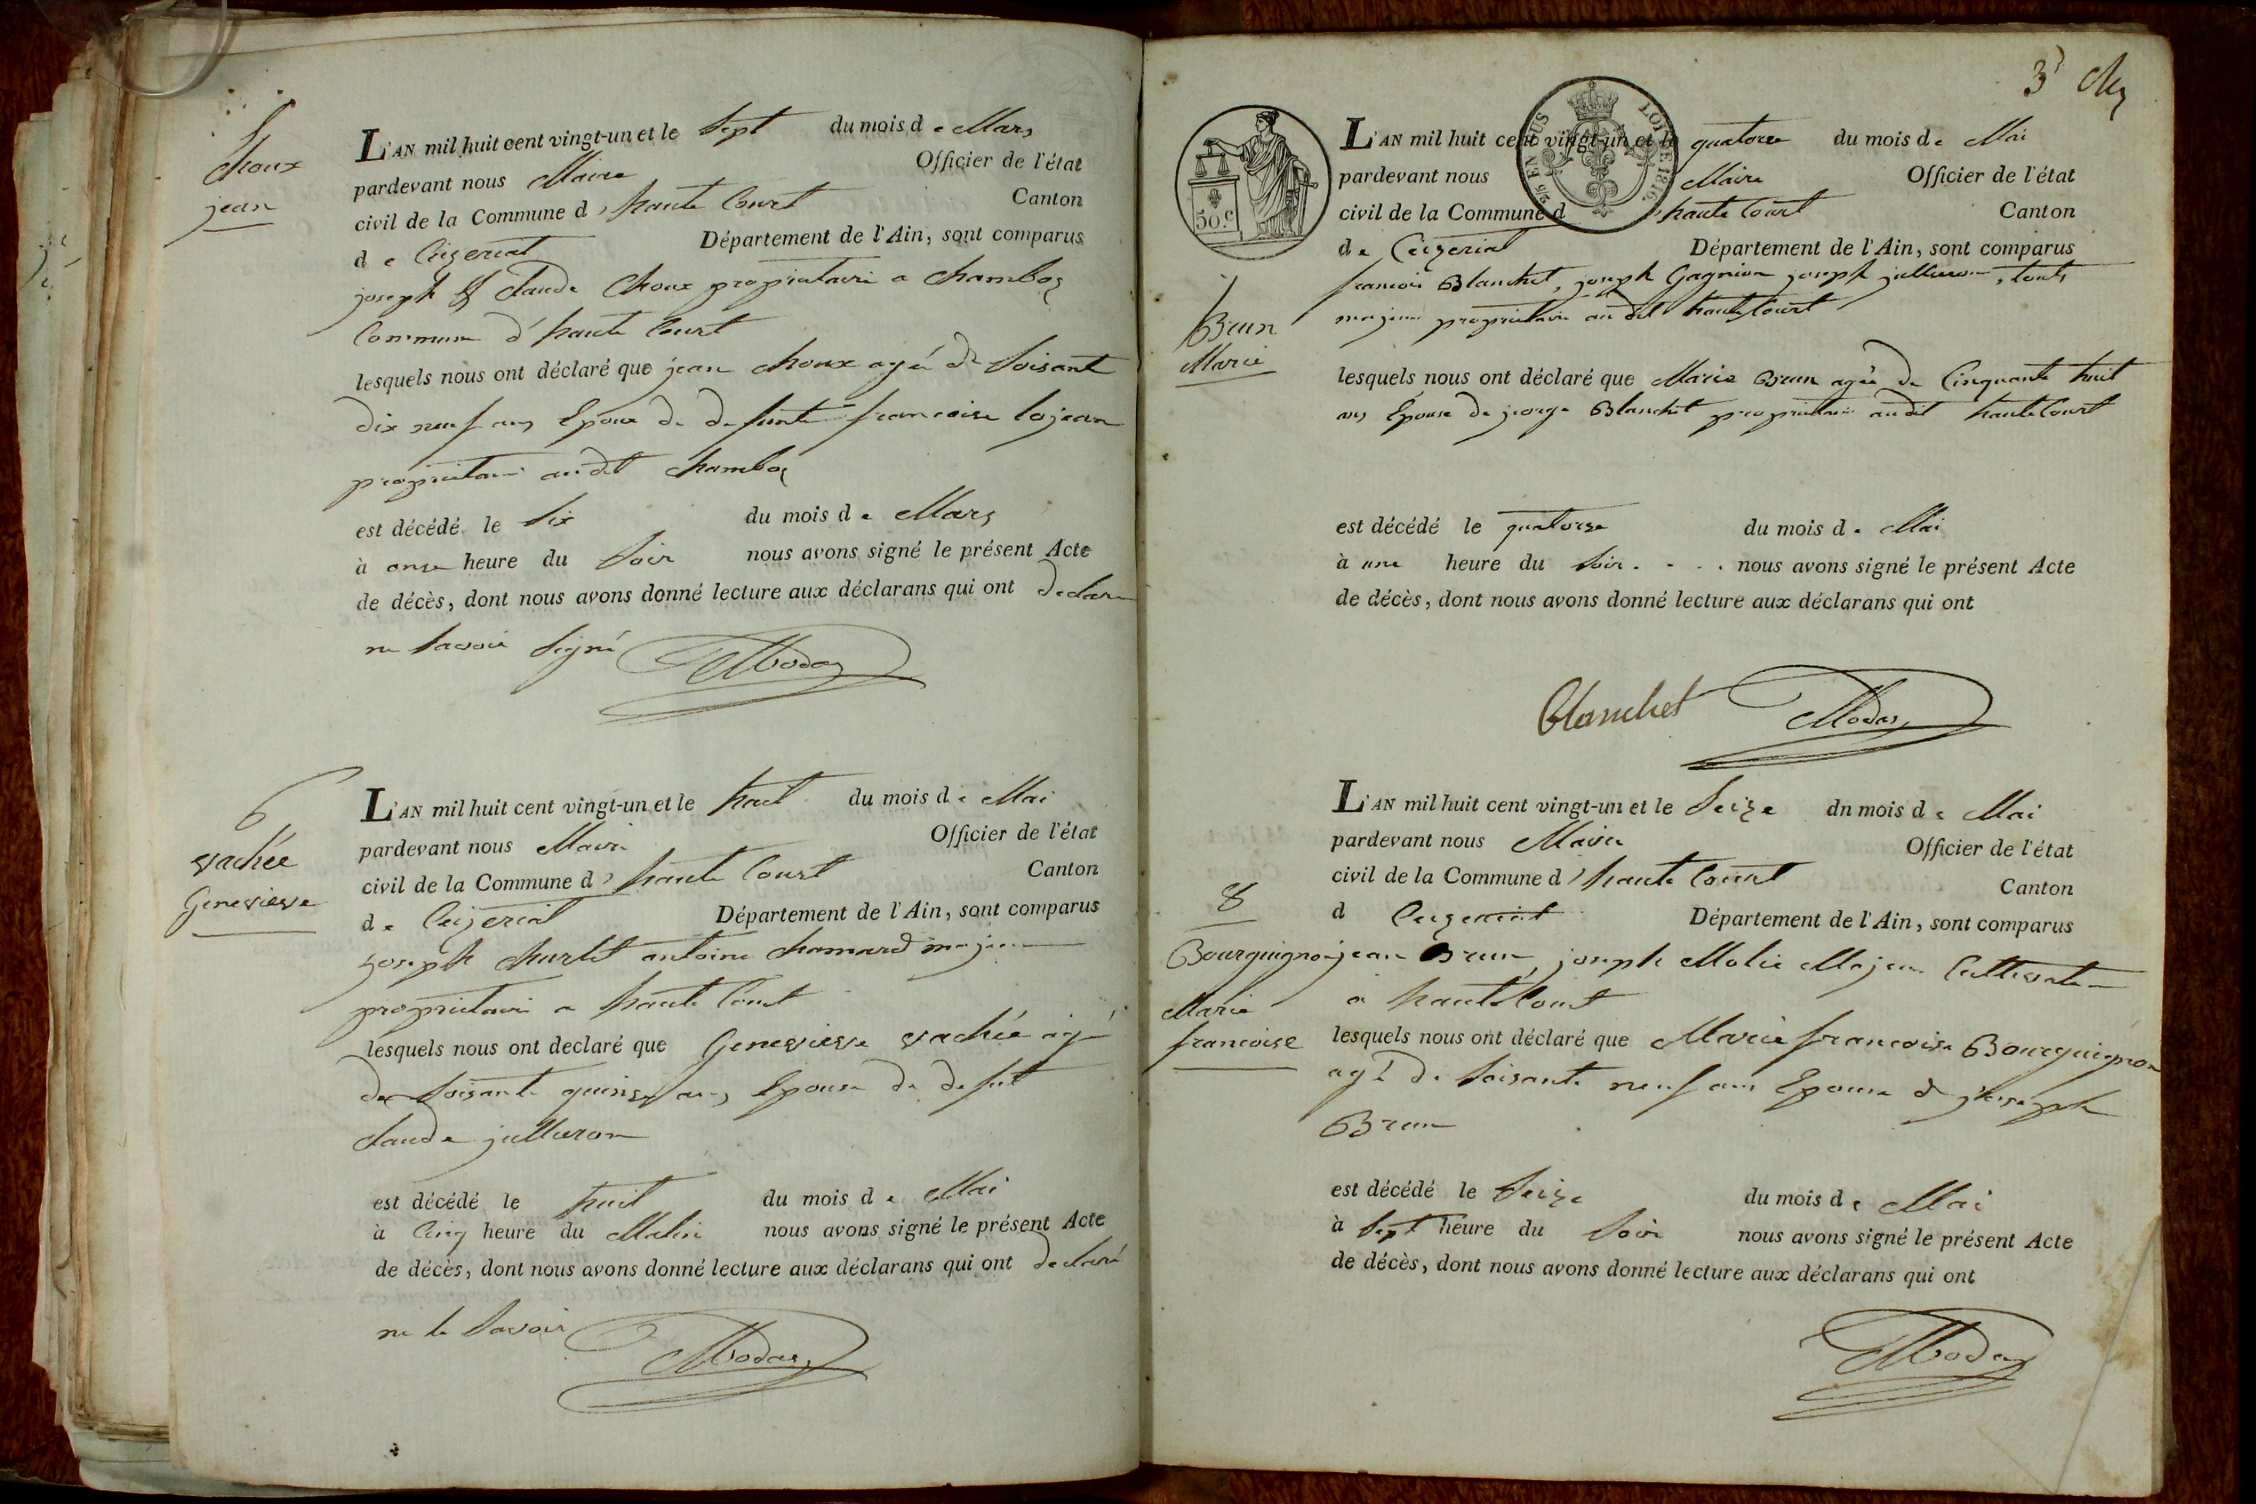 5
Choux
jean
L'AN mil huit cent vingt-un et le Sept du mois de Mars
pardevant nous Maire Officier de l'état
civil de la Commune d'haute Court Canton
de Ceizeriat Département de l'Ain, sont comparus
joseph & Claude Choux propriétaire a Chambos
Commune d'haute Court
lesquels nous ont déclaré que jean Choux agé de Soisante
dix neuf ans Epoux de defunte francoise lojean
proprietaire audit Chambos
est décédé le Six du mois de Mars
à onse heure du Soir nous avons signé le présent Acte
de décès, dont nous avons donné lecture aux déclarans qui ont declare
ne Savoir Signé
6
vachée
Genevieve
L'AN mil huit cent vingt-un et le huit du mois de Mai
pardevant nous Maire Officier de l'état
civil de la Commune d'haute Court Canton
de Ceizeriat Département de l'Ain, sont comparus
joseph Churlet antoine Chanard majeur
proprietaire a haute Court
lesquels nous ont declaré que Genevieve vachée agé
de Soisante quinse ans Epouse de defut
Claude jullieron
est décédé le huit du mois de Mai
à Cinq heure du Matin nous avons signé le présent Acte
de décès, dont nous avons donné lecture aux déclarans qui ont declaré
ne le Savoir
3
50.C
2/5 EN SUS
LOI DE 1816
7
Brun
Marie
L'AN mil huit cent vingt-un et le quatorze du mois de Mai
pardevant nous Maire Officier de l'état
civil de la Commune d'haute Court Canton
de Ceizeriat Département de l'Ain, sont comparus
francois Blanchet, joseph Gagnion joseph jullieron, touts
majeur proprietaire audit haute Court
lesquels nous ont déclaré que Marie Brun agée de Cinquante huit
ans Epouse de jeorge Blanchet proprietaire audit haute Court
est décédé le quatorse du mois de Mai
à une heure du Soir. . . . nous avons signé le présent Acte
de décès, dont nous avons donné lecture aux déclarans qui ont
Blanchet
8
Bourguignon
Marie
francoise
L'AN mil huit cent vingt-un et le Seize dn mois de Mai
pardevant nous Maire Officier de l'état
civil de la Commune d'haute Court Canton
d Ceizeriat Département de l'Ain, sont comparus
jean Brun, joseph Molie Majeur Cultivateur
a haute Court
lesquels nous ont déclaré que Marie francoise Bourguignon
agé de Soisante neuf ans Epouse de joseph
Brun
est décédé le Seize du mois de Mai
à Sept heure du Soir nous avons signé le présent Acte
de décès, dont nous avons donné lecture aux déclarans qui ont